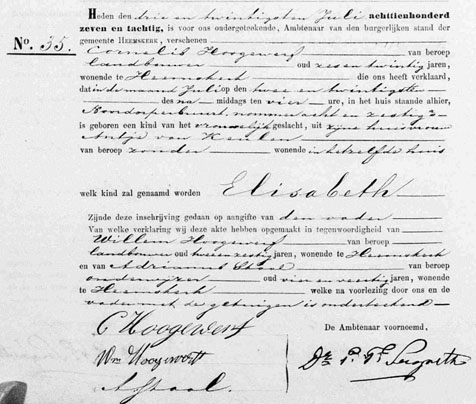 Heden den drie en twintigsten Juli achttienhonderd
zeven en tachtig, is voor ons ondergeteekende, Ambtenaar van den burgerlijken stand der
gemeente HEEMSKERK, verschenen
No. 35.
Cornelis Hoogewerf van beroep
landbouwer oud zes en twintig jaren,
wonende te Heemskerk die ons heeft verklaard,
dat in de maand Juli op den twee en twintigsten
des na middags ten vier ure, in het huis staande alhier,
Noordorperbuurt, nommer acht en zestig
is geboren een kind van het vrouwelijk geslacht, uit zijne huisvrouw
Antje van
van beroep zonder wonende in hetzelfde huis
welk kind zal genaamd worden Elisabeth
Zijnde deze inschrijving gedaan op aangifte van den vader
Van welke verklaring wij deze akte hebben opgemaakt in tegenwoordigheid van
Willem Hoogewerf van beroep
landbouwer oud twee en zestig jaren, wonende te Heemskerk
en van Adrianus Staal van beroep
onderwijzer oud vier en veertig jaren, wonende
te Heemskerk welke na voorlezing door ons en de
vader met de getuigen is onderteekend
C Hoogewerf
Wm Hoogewerf
A Staal.
De Ambtenaar voornoemd,